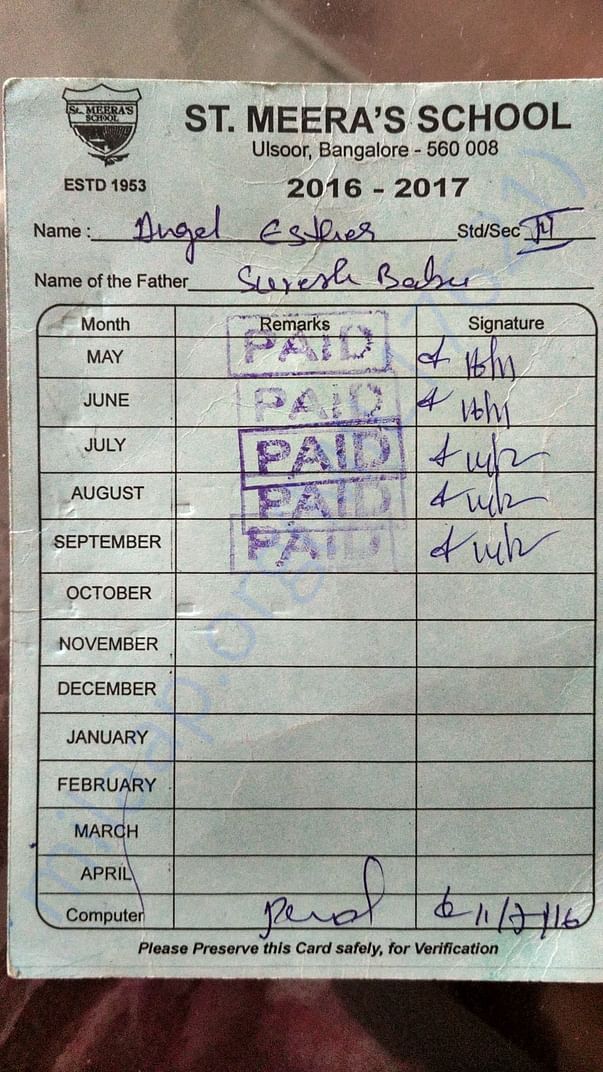 ST. MEERA'S
SCHOOL
ST. MEERA'S SCHOOL
Ulsoor, Bangalore - 560 008
ESTD 1953
2016 - 2017
Name : Angel Esther Std/Sec
Name of the Father Suresh Babu
Month Remarks Signature
MAY PAID
JUNE PAID
JULY PAID
AUGUST PAID
SEPTEMBER PAID
OCTOBER
NOVEMBER
DECEMBER
JANUARY
FEBRUARY
MARCH
APRIL
Computer
Please Preserve this Card safely, for Verification
milaap.org